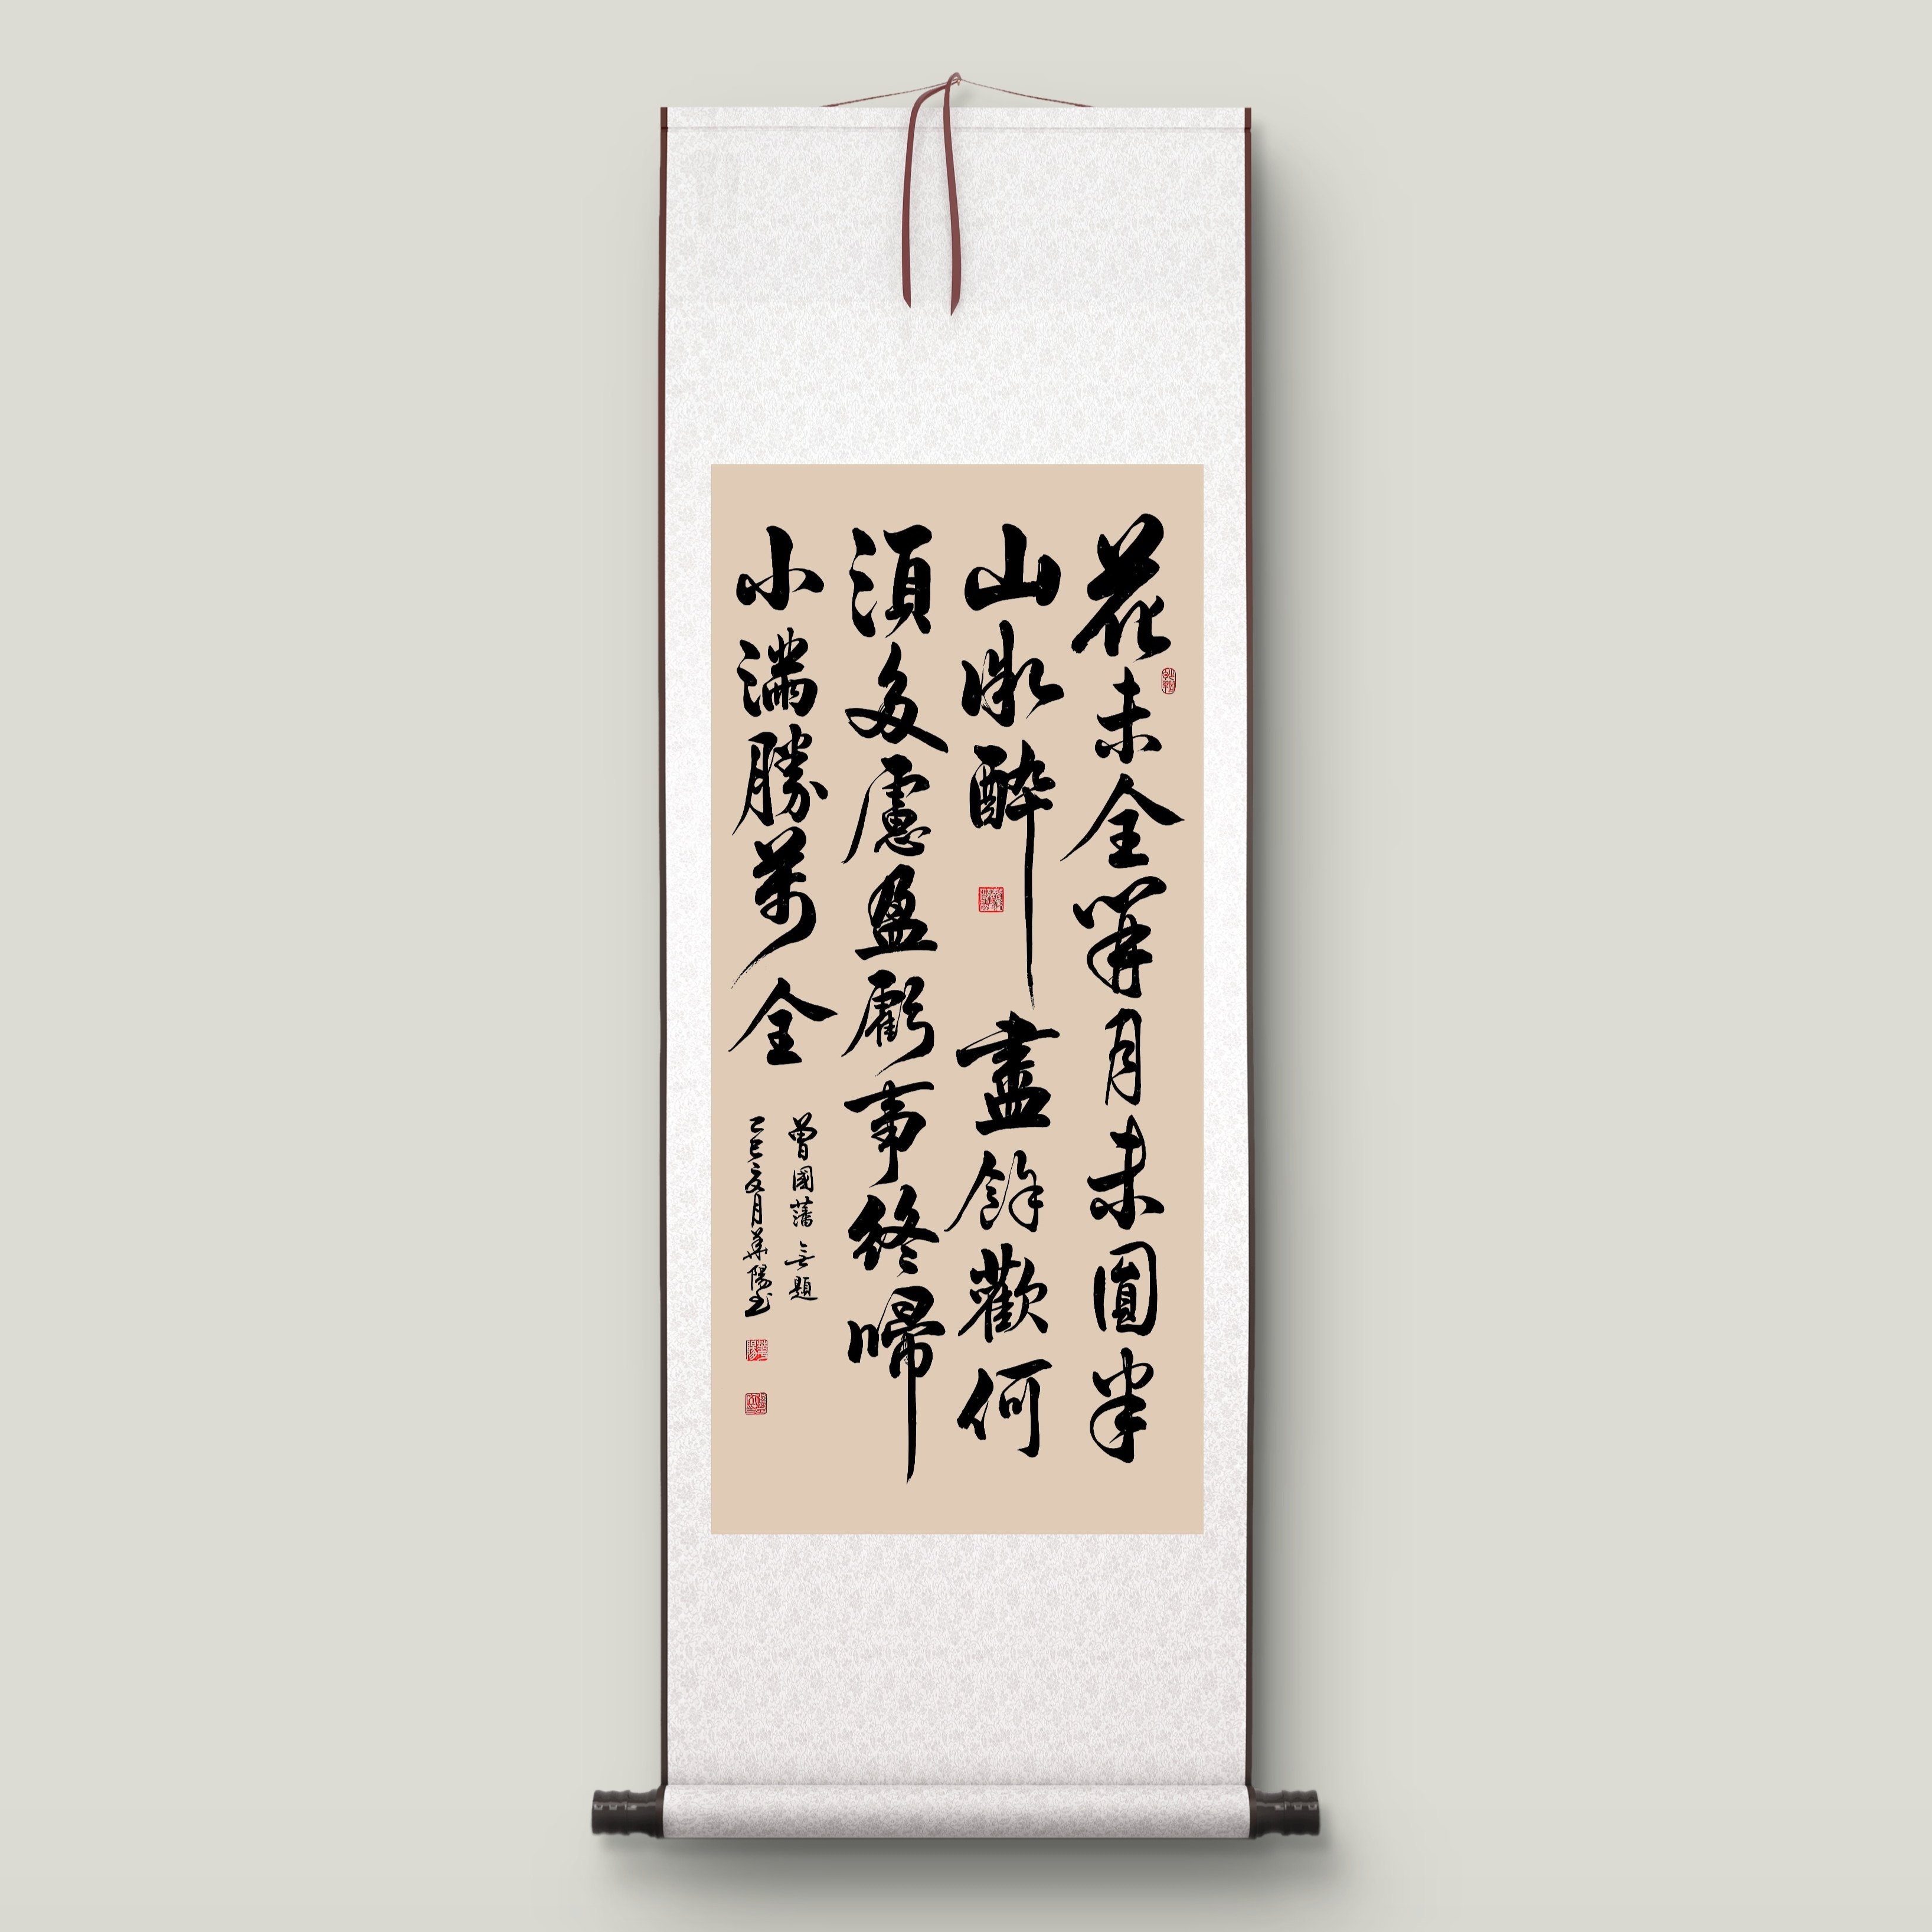 花未全開月未圓半
山微醉盡餘歡何
須多慮盈虧事終歸
小滿勝萬全
曾國藩無題
乙巳夏月華陽書